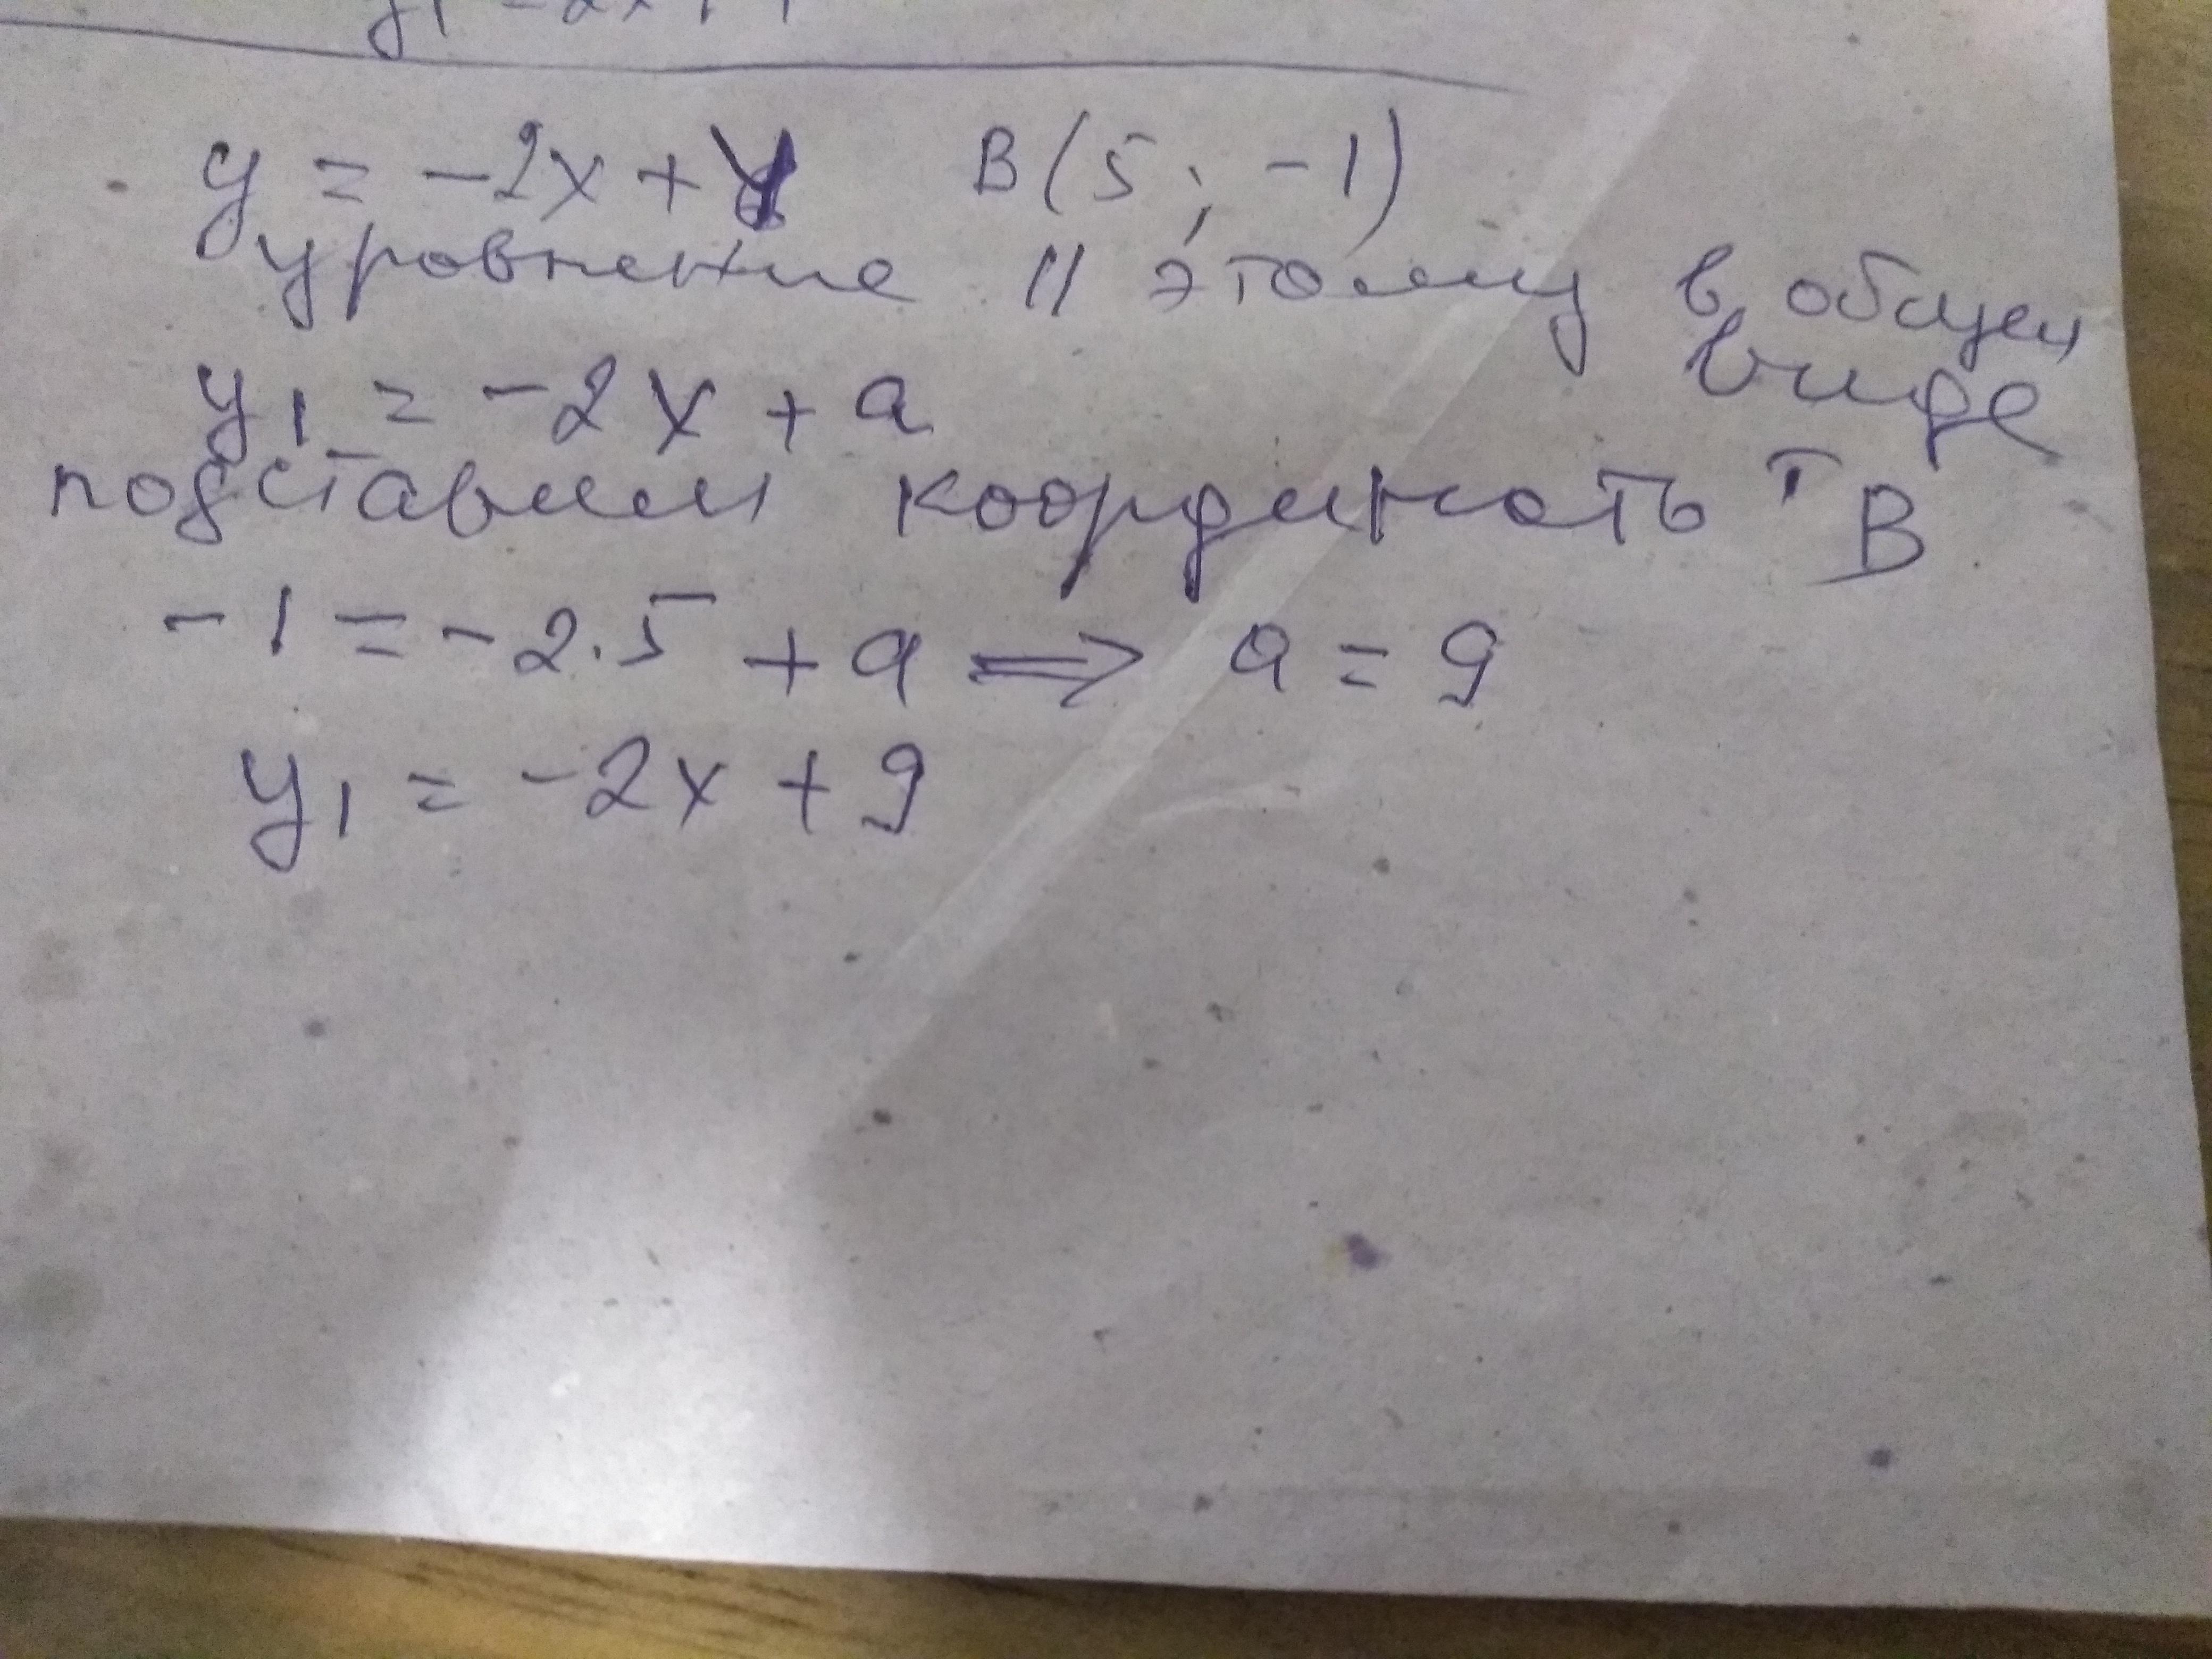 y = -2x + 4 B(5; -1)
уровнение || этому в общем
виде
y₁ = -2x + a
подставим координаты т B
-1 = -2·5 + a ⟹ a = 9
y₁ = -2x + 9